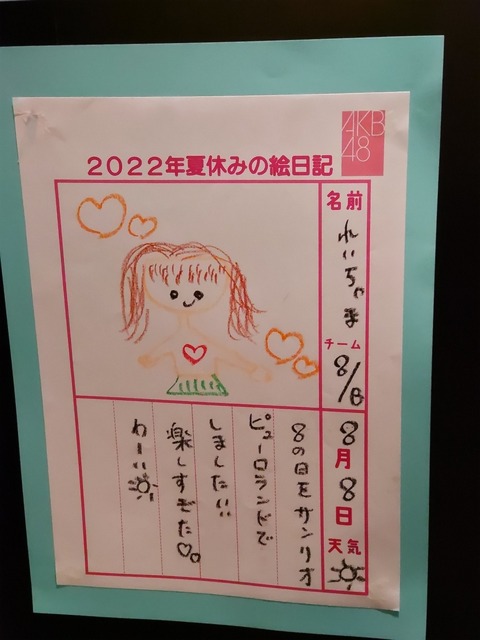 AKB
48
2022年夏休みの絵日記
名前
れいちゃま
チーム
8/日
8月8日
天気
8の日をサンリオ
ピューロランドで
しました!!
楽しすぎた♡♡
わーい